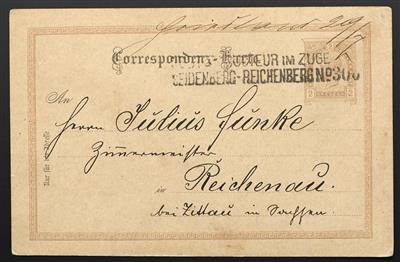 Friedland 29/7
Correspondenz-Karte
TEUR IM ZUGE
SEIDENBERG-REICHENBERG No 300
2 2
An
Herrn Julius Funke
Zimmermeister
in Reichenau.
bei Zittau in Sachsen.
Nur für die Adresse